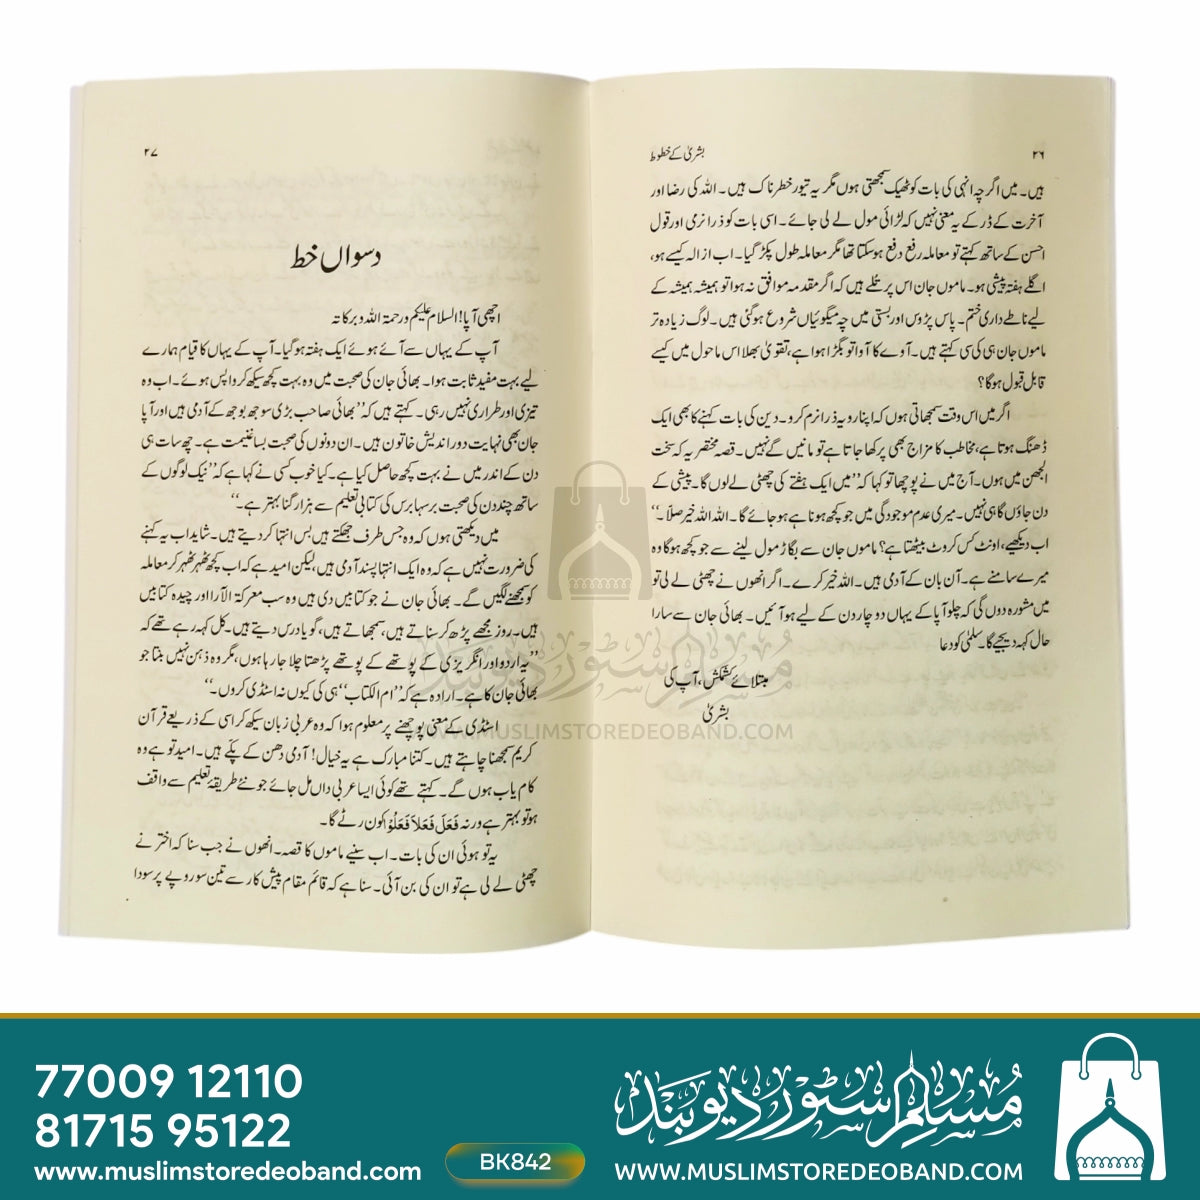 ۲۶
بشریٰ کے خطوط
ہیں۔ میں اگرچہ انہی کی بات کو ٹھیک سمجھتی ہوں مگر یہ تیور خطرناک ہیں۔ اللہ کی رضا اور
آخرت کے ڈر کے یہ معنی نہیں کہ لڑائی مول لے لی جائے۔ اسی بات کو ذرا نرمی اور قول
احسن کے ساتھ کہتے تو معاملہ رفع دفع ہوسکتا تھا مگر معاملہ طول پکڑ گیا۔ اب ازالہ کیسے ہو،
اگلے ہفتہ پیشی ہو۔ ماموں جان اس پر تُلے ہیں کہ اگر مقدمہ موافق نہ ہوا تو ہمیشہ ہمیشہ کے
لیے ناطے داری ختم۔ پاس پڑوس اور بستی میں چہ میگوئیاں شروع ہوگئی ہیں۔ لوگ زیادہ تر
ماموں جان ہی کی سی کہتے ہیں۔ آوے کا آوا تو بگڑا ہوا ہے، تقویٰ بھلا اس ماحول میں کیسے
قابل قبول ہوگا؟
اگر میں اس وقت سمجھاتی ہوں کہ اپنا رویہ ذرا نرم کرو۔ دین کی بات کہنے کا بھی ایک
ڈھنگ ہوتا ہے، مخاطب کا مزاج بھی پرکھا جاتا ہے تو مانیں گے نہیں۔ قصہ مختصر یہ کہ سخت
الجھن میں ہوں۔ آج میں نے پوچھا تو کہا کہ ’’میں ایک ہفتے کی چھٹی لے لوں گا۔ پیشی کے
دن جاؤں گا ہی نہیں۔ میری عدم موجودگی میں جو کچھ ہونا ہے ہو جائے گا۔ اللہ اللہ خیر صلّا۔‘‘
اب دیکھیے، اونٹ کس کروٹ بیٹھتا ہے؟ ماموں جان سے بگاڑ مول لینے سے جو کچھ ہوگا وہ
میرے سامنے ہے۔ آن بان کے آدمی ہیں۔ اللہ خیر کرے۔ اگر انھوں نے چھٹی لے لی تو
میں مشورہ دوں گی کہ چلو آپا کے یہاں دو چار دن کے لیے ہو آئیں۔ بھائی جان سے سارا
حال کہہ دیجیے گا۔ سلمٰی کو دعا
مبتلائے کشمکش، آپ کی
بشریٰ
۲۷
دسواں خط
اچھی آپا! السلام علیکم ورحمۃ اللہ وبرکاتہ
آپ کے یہاں سے آئے ہوئے ایک ہفتہ ہوگیا۔ آپ کے یہاں کا قیام ہمارے
لیے بہت مفید ثابت ہوا۔ بھائی جان کی صحبت میں وہ بہت کچھ سیکھ کر واپس ہوئے۔ اب وہ
تیزی اور طراری نہیں رہی۔ کہتے ہیں کہ ’’بھائی صاحب بڑی سوجھ بوجھ کے آدمی ہیں اور آپا
جان بھی نہایت دور اندیش خاتون ہیں۔ ان دونوں کی صحبت بسا غنیمت ہے۔ چھ سات ہی
دن کے اندر میں نے بہت کچھ حاصل کیا ہے۔ کیا خوب کسی نے کہا ہے کہ ’’نیک لوگوں کے
ساتھ چند دن کی صحبت برسہا برس کی کتابی تعلیم سے ہزار گنا بہتر ہے۔‘‘
میں دیکھتی ہوں کہ وہ جس طرف جھکتے ہیں بس انتہا کر دیتے ہیں۔ شاید اب یہ کہنے
کی ضرورت نہیں ہے کہ وہ ایک انتہا پسند آدمی ہیں، لیکن امید ہے کہ اب کچھ ٹھہر ٹھہر کر معاملہ
کو سمجھنے لگیں گے۔ بھائی جان نے جو کتابیں دی ہیں وہ سب معرکۃ الآرا اور چیدہ کتابیں
ہیں۔ روز مجھے پڑھ کر سناتے ہیں، سمجھاتے ہیں، گویا درس دیتے ہیں۔ کل کہہ رہے تھے کہ
’’یہ اردو اور انگریزی کے پوتھے کے پوتھے پڑھتا چلا جا رہا ہوں، مگر وہ ذہن نہیں بنتا جو
بھائی جان کا ہے۔ ارادہ ہے کہ ’’ام الکتاب‘‘ ہی کی کیوں نہ اسٹڈی کروں۔‘‘
اسٹڈی کے معنی پوچھنے پر معلوم ہوا کہ وہ عربی زبان سیکھ کر اسی کے ذریعے قرآن
کریم سمجھنا چاہتے ہیں۔ کتنا مبارک ہے یہ خیال! آدمی دھن کے پکے ہیں۔ امید تو ہے وہ
کام یاب ہوں گے۔ کہتے تھے کوئی ایسا عربی داں مل جائے جو نئے طریقۂ تعلیم سے واقف
ہو تو بہتر ہے ورنہ فَعَلَ فَعَلاَ فَعَلُوْا کون رٹے گا۔
یہ تو ہوئی ان کی بات۔ اب سنیے ماموں کا قصہ۔ انھوں نے جب سنا کہ اختر نے
چھٹی لے لی ہے تو ان کی بن آئی۔ سنا ہے کہ قائم مقام پیش کار سے تین سو روپے پر سودا
مسلم سٹور دیوبند
WWW.MUSLIMSTOREDEOBAND.COM
77009 12110
81715 95122
www.muslimstoredeoband.com
BK842
مسلم سٹور دیوبند
WWW.MUSLIMSTOREDEOBAND.COM